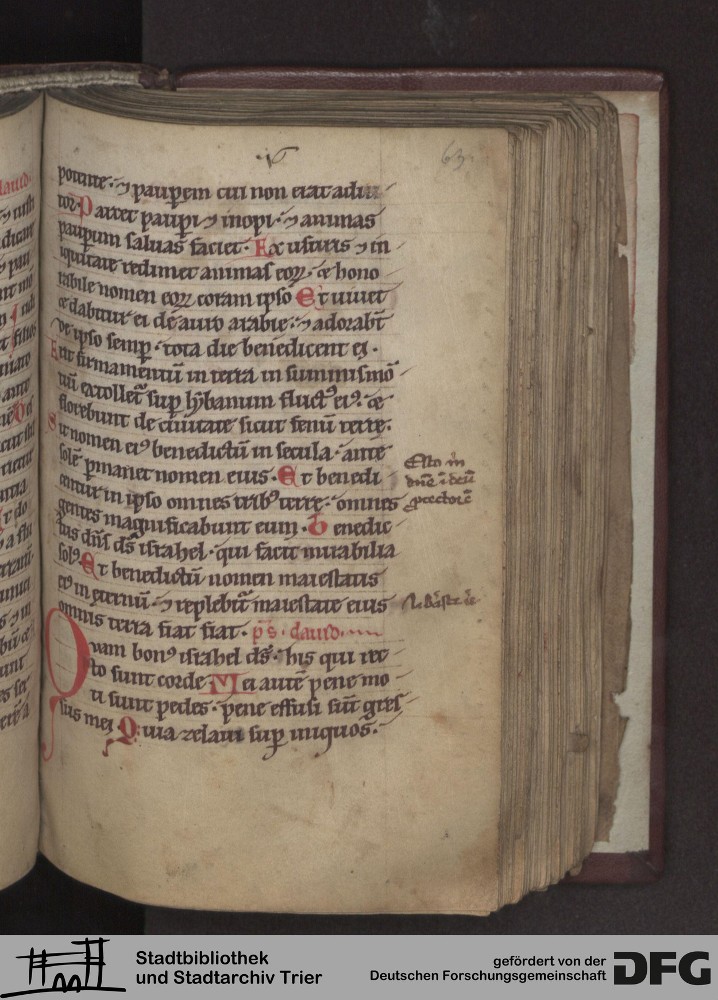 63
potente· ⁊ pauꝑem cui non erat adiu
tor· Parcet pauꝑi ⁊ inopi· ⁊ animas
pauꝑum saluas faciet· Ex usuris ⁊ in
iquitate redimet animas eoꝝ· et hono
rabile nomen eoꝝ coram ipso Et uiuet
et dabitur ei de auro arabie· ⁊ adorabt̄
de ipso semꝑ· tota die benedicent ei·
Erit firmamentū in terra in summis mō
tiū extollet̄ suꝑ lybanum fruct᷒ ei᷒· et
florebunt de ciuitate sicut fenū terre·
Sit nomen ei᷒ benedictū in secula· ante
solē ꝑmanet nomen eius· Et benedi
centur in ipso omnes trib᷒ terre· omnes
gentes magnificabunt eum· Benedic
tus dn̄s ds̄ israhel· qui facit mirabilia
sol᷒· Et benedictū nomen maiestatis
ei᷒ in eternū· ⁊ replebit̄ maiestate eius
omnis terra fiat fiat· ps̄· dauid·
Quam bon᷒ israhel ds̄· his qui rec
to sunt corde· Mei autē pene mo
ti sunt pedes· pene effusi sūt gres
sus mei Quia zelaui suꝑ iniquos·
Esto m̄
dūɜ ī deū
ꝓtectorē
Stadtbibliothek
und Stadtarchiv Trier
gefördert von der
Deutschen Forschungsgemeinschaft
DFG